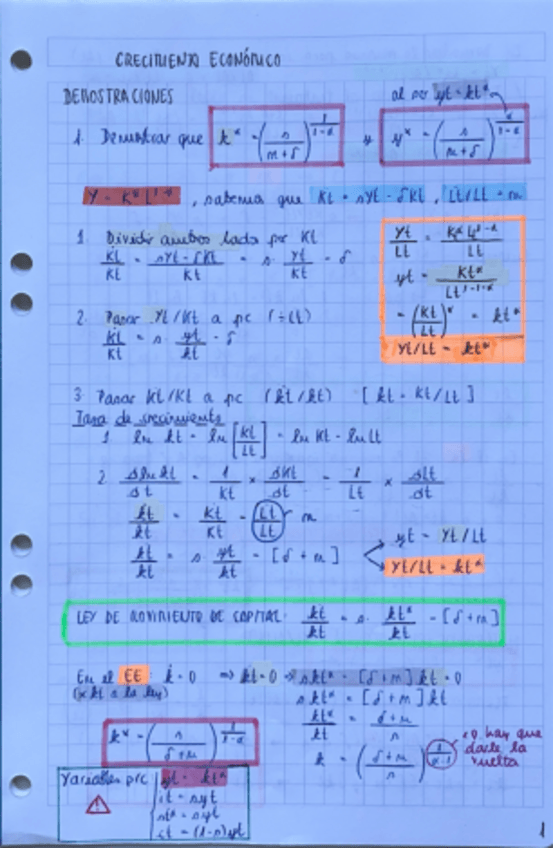 CRECIMIENTO ECONÓMICO
DEMOSTRACIONES
al ser yt = kt^α
1. Demostrar que k* = (s / (n+δ))^(1/(1-α)) y y* = (s / (n+δ))^(α/(1-α))
Y = K^α L^(1-α) , sabemos que K̇t = sYt - δKt , L̇t/Lt = n
1. Dividir ambos lados por Kt
K̇t/Kt = (sYt - δKt)/Kt = s · Yt/Kt - δ
Yt/Lt = K^α L^(1-α) / Lt
yt = Kt^α / Lt^(1-1-α)
= (Kt/Lt)^α = kt^α
Yt/Lt = kt^α
2. Pasar Yt/Kt a pc (÷Lt)
K̇t/Kt = s · yt/kt - δ
3. Pasar K̇t/Kt a pc (k̇t/kt) [kt = Kt/Lt]
Tasa de crecimiento
1. ln kt = ln [Kt/Lt] = ln Kt - ln Lt
2. δ ln kt / δt = 1/Kt × δKt/δt - 1/Lt × δLt/δt
k̇t/kt = K̇t/Kt - L̇t/Lt n
k̇t/kt = s · yt/kt - [δ+n]
yt = Yt/Lt
Yt/Lt = kt^α
LEY DE MOVIMIENTO DE CAPITAL: k̇t/kt = s · kt^α/kt - [δ+n]
En el EE: k̇ = 0 ⇒ k̇t = 0 → skt^α - [δ+n] kt = 0
(x kt a la ley)
s kt^α = [δ+n] kt
kt^α/kt = (δ+n)/s
k = ((δ+n)/s)^(1/(α-1))
hay que darle la vuelta
k* = (s/(δ+n))^(1/(1-α))
Variables pc
yt = kt^α
it = syt
st = syt
ct = (1-s)yt
1